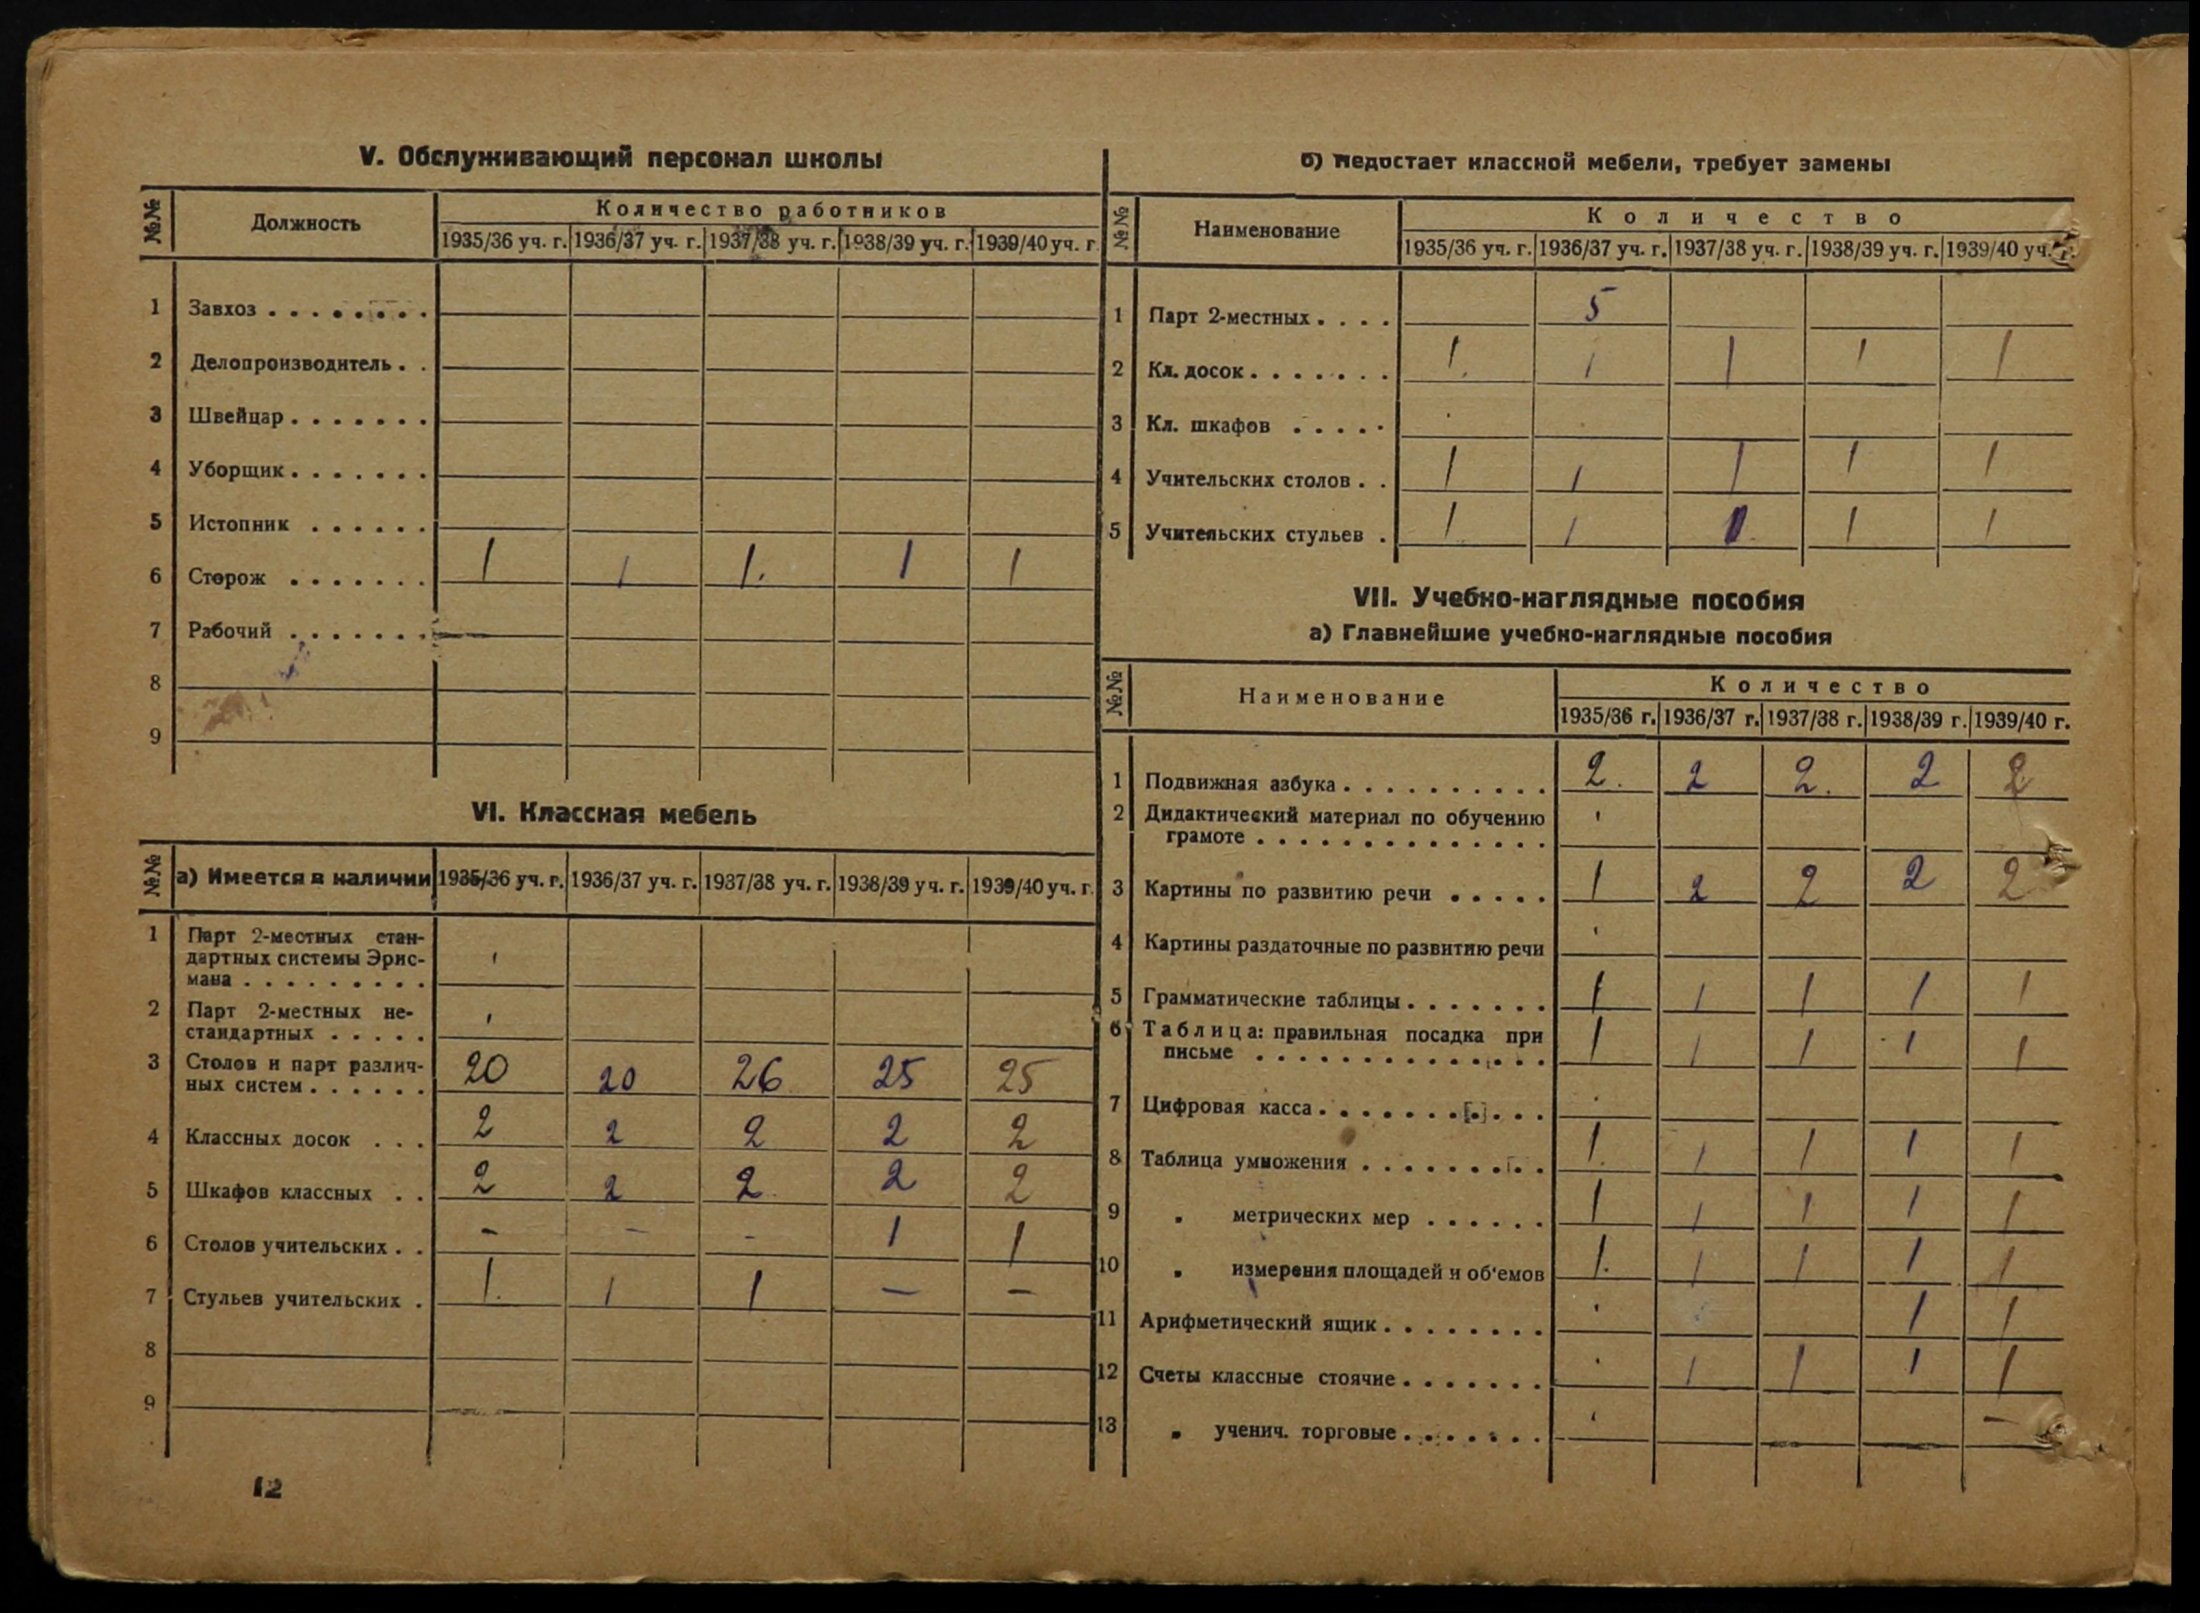 V. Обслуживающий персонал школы
№№ Должность Количество работников
1935/36 уч. г. 1936/37 уч. г. 1937/38 уч. г. 1938/39 уч. г. 1939/40 уч. г.
1 Завхоз . . . . . . . .
2 Делопроизводитель . .
3 Швейцар . . . . . . .
4 Уборщик . . . . . . .
5 Истопник . . . . . .
6 Сторож . . . . . . . 1 1 1. 1 1
7 Рабочий . . . . . . .
8
9
VI. Классная мебель
№№ а) Имеется в наличии 1935/36 уч. г. 1936/37 уч. г. 1937/38 уч. г. 1938/39 уч. г. 1939/40 уч. г.
1 Парт 2-местных стан-
дартных системы Эрис-
мана . . . . . . . . .
2 Парт 2-местных не-
стандартных . . . . .
3 Столов и парт различ-
ных систем . . . . . . 20 20 26 25 25
4 Классных досок . . . 2 2 2 2 2
5 Шкафов классных . . 2 2 2 2 2
6 Столов учительских . . - - - 1 1
7 Стульев учительских . 1. 1 1 — —
8
9
12
б) Недостает классной мебели, требует замены
№№ Наименование Количество
1935/36 уч. г. 1936/37 уч. г. 1937/38 уч. г. 1938/39 уч. г. 1939/40 уч. г.
1 Парт 2-местных . . . . 5
2 Кл. досок . . . . . . . 1. 1 1 1 1
3 Кл. шкафов . . . . .
4 Учительских столов . . 1 1 1 1 1
5 Учительских стульев . 1 1 1 1
VII. Учебно-наглядные пособия
а) Главнейшие учебно-наглядные пособия
№№ Наименование Количество
1935/36 г. 1936/37 г. 1937/38 г. 1938/39 г. 1939/40 г.
1 Подвижная азбука . . . . . . . . . . 2. 2 2. 2 2
2 Дидактический материал по обучению
грамоте . . . . . . . . . . . . . .
3 Картины по развитию речи . . . . . 1 2 2 2 2
4 Картины раздаточные по развитию речи
5 Грамматические таблицы . . . . . . . 1 1 1 1 1
6 Таблица: правильная посадка при
письме . . . . . . . . . . . . . . 1 1 1 1 1
7 Цифровая касса . . . . . . . . . . .
8 Таблица умножения . . . . . . . . . 1. 1 1 1 1
9 „ метрических мер . . . . . . 1 1 1 1 1
10 „ измерения площадей и об'емов 1. 1 1 1 1
11 Арифметический ящик . . . . . . . . 1 1
12 Счеты классные стоячие . . . . . . . 1 1 1 1
13 „ ученич. торговые . . . . . . . —